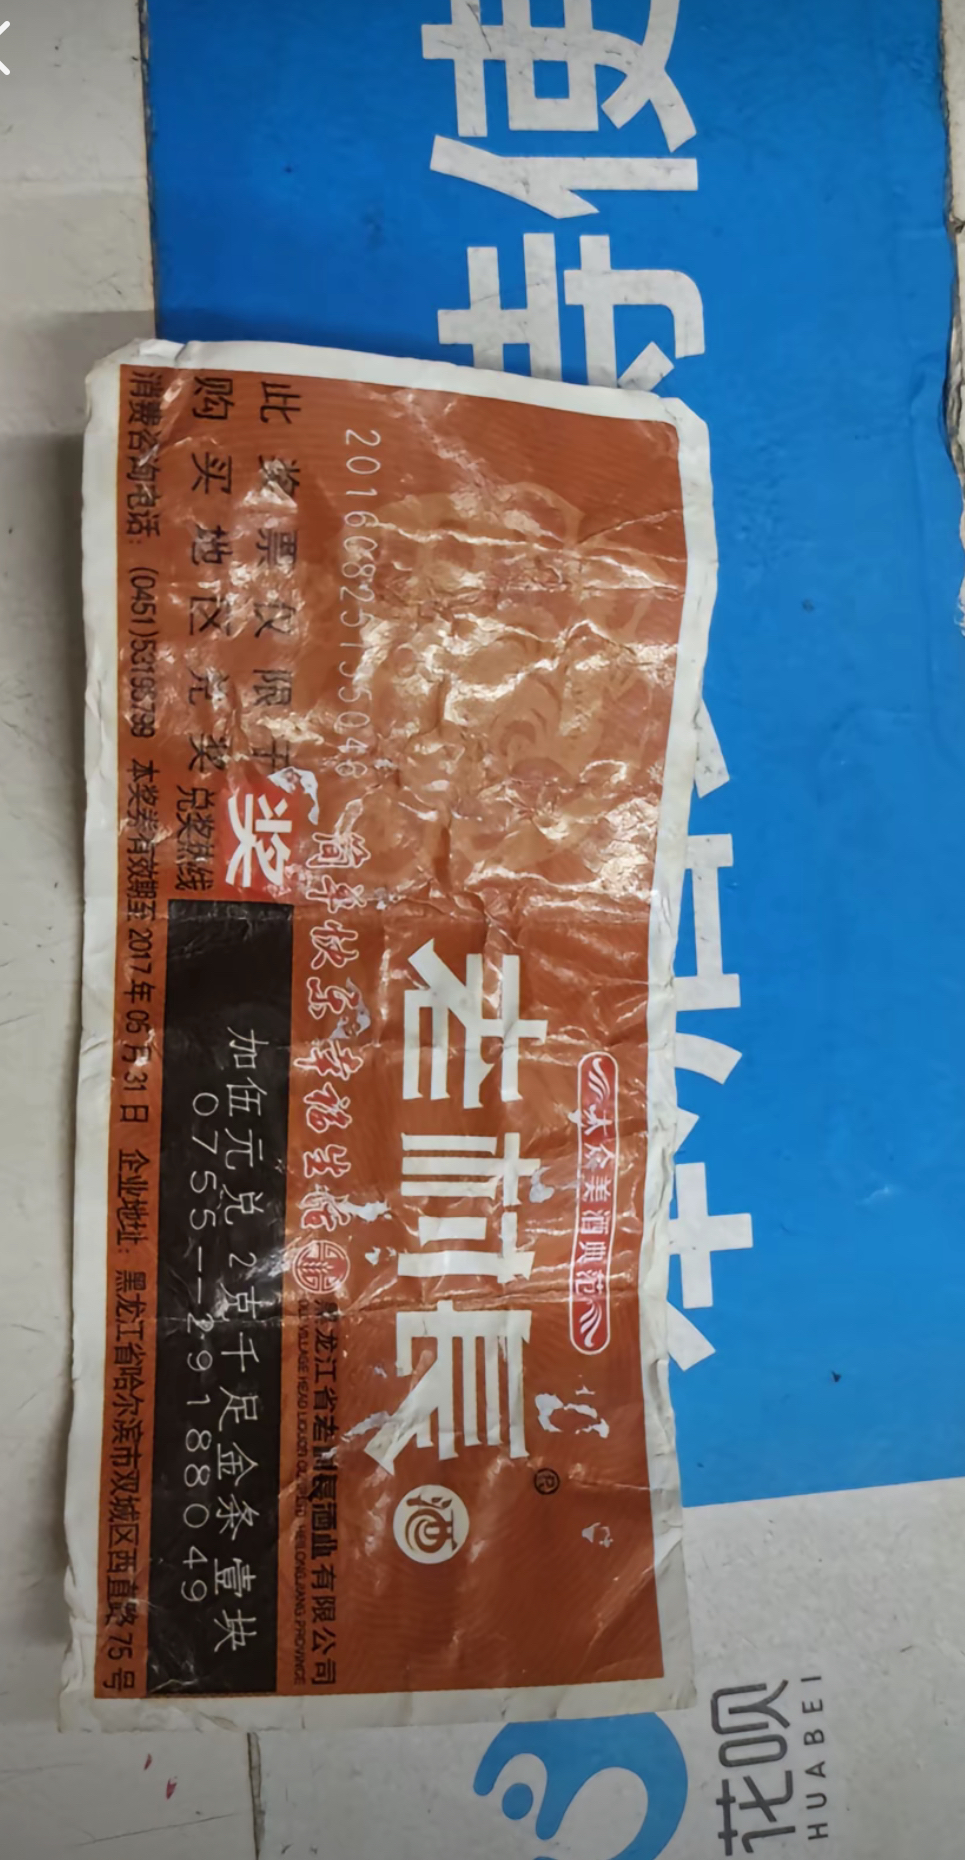 大众美酒典范
老村长®
酒
20160825195046
简单快乐幸福生活
黑龙江省老村长酒业有限公司
此奖票仅限于
购买地区兑奖
奖
兑奖热线
加伍元兑2克千足金条壹块
0755--29188049
消费咨询电话：(0451)53195799 本奖券有效期至2017年05月31日 企业地址：黑龙江省哈尔滨市双城区西直路75号
花呗
HUABEI